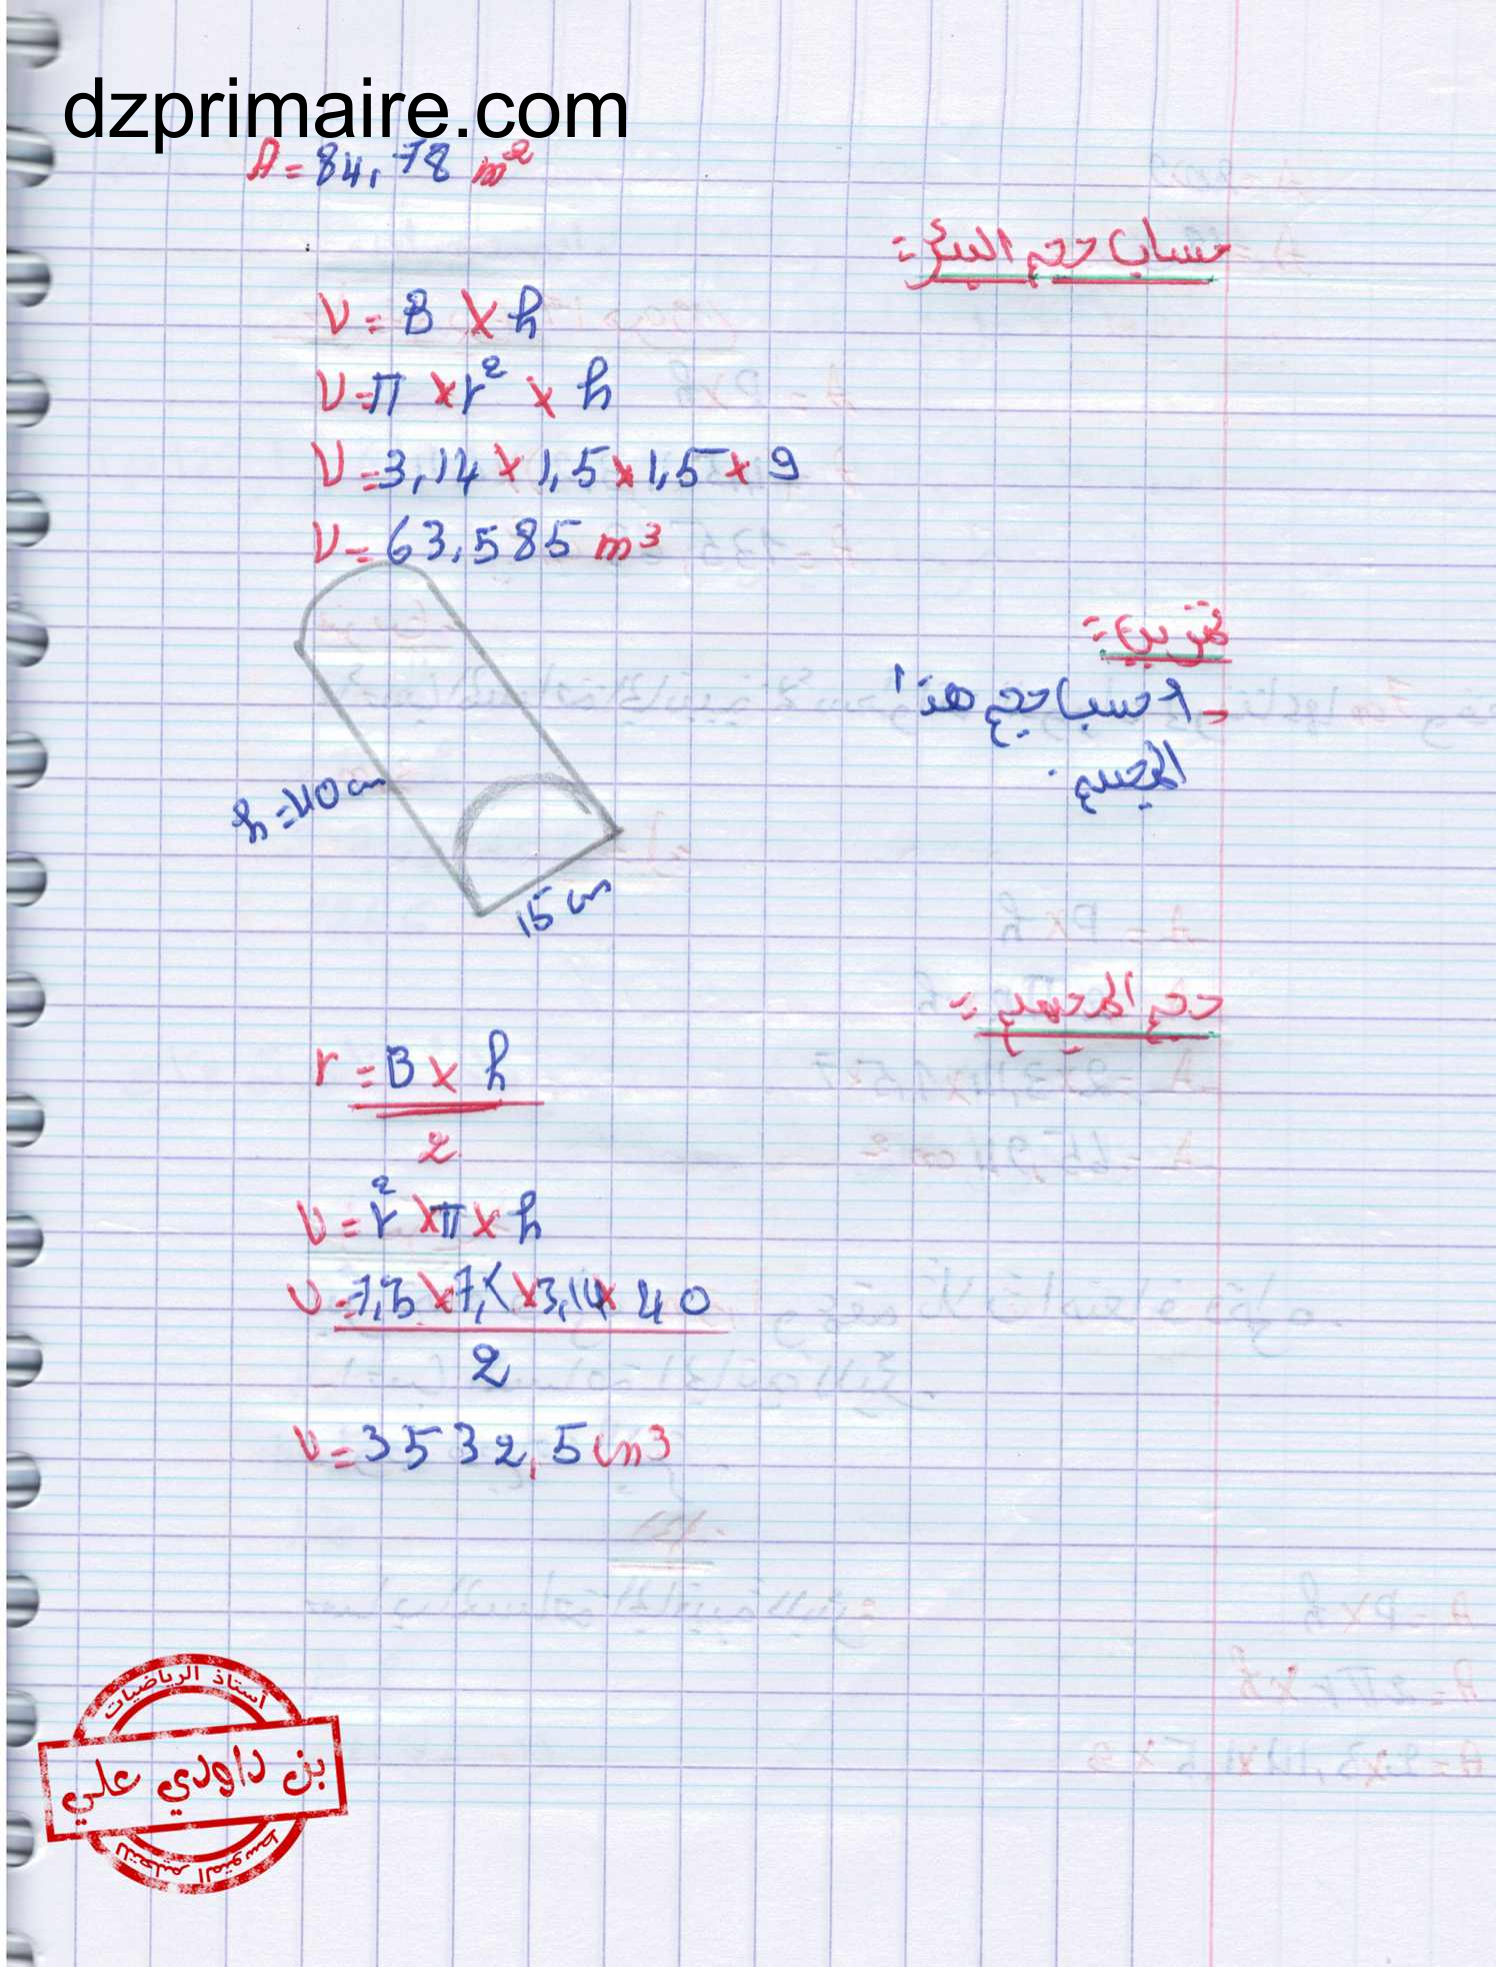 dzprimaire.com
A = 84,78 m²
حساب حجم البئر =
V = B × h
V = π × r² × h
V = 3,14 × 1,5 × 1,5 × 9
V = 63,585 m³
تمرين =
- احسب حجم هذا
المجسم.
h = 40 cm
15 cm
حجم المجسم =
r = B × h
2
V = r² × π × h
V = 7,5 × 7,5 × 3,14 × 40
2
V = 3532,5 cm³
أستاذ الرياضيات
بن داودي علي
للتعليم المتوسط